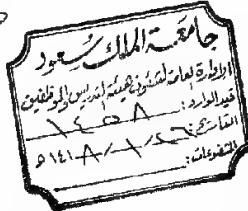 جامعة الملك سعود
الإدارة العامة لشئون هيئة التدريس والموظفين
قيد الوارد: ١٤٥٨
التاريخ: ٢٦/١/١٤١٨ه
المرفقات: